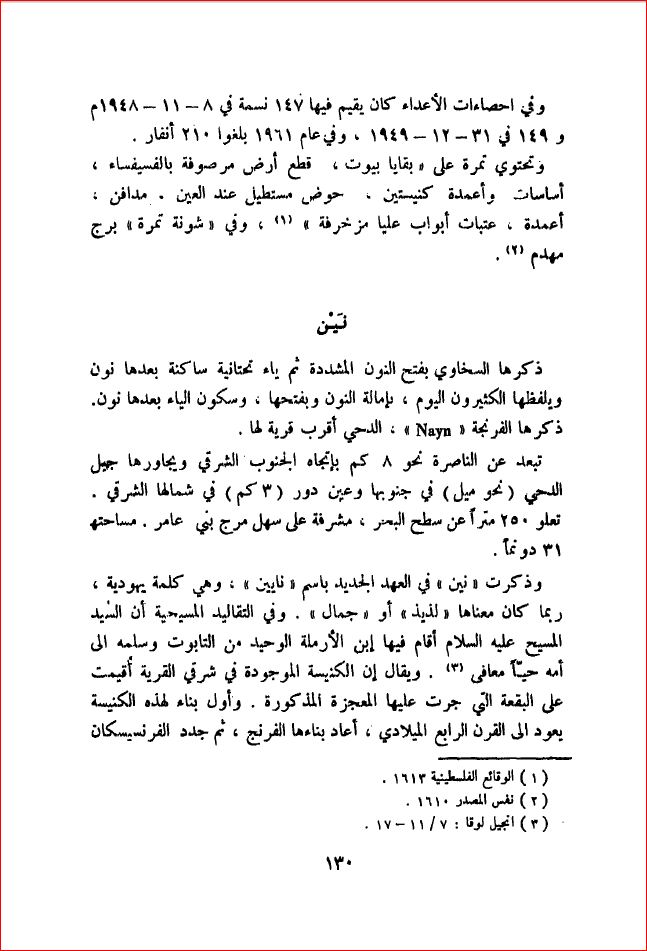 وفي احصاءات الأعداء كان يقيم فيها ١٤٧ نسمة في ٨ – ١١ – ١٩٤٨م
و ١٤٩ في ٣١ – ١٢ – ١٩٤٩ ، وفي عام ١٩٦١ بلغوا ٢١٠ أنفار .
وتحتوي تمرة على « بقايا بيوت ، قطع أرض مرصوفة بالفسيفساء ،
أساسات وأعمدة كنيستين ، حوض مستطيل عند العين . مدافن ،
أعمدة ، عتبات أبواب عليا مزخرفة » (١) ، وفي « شونة تمرة » برج
مهدم (٢) .
نَيْن
ذكرها السخاوي بفتح النون المشددة ثم ياء تحتانية ساكنة بعدها نون
ويلفظها الكثيرون اليوم ، بإمالة النون وبفتحها ، وسكون الياء بعدها نون.
ذكرها الفرنجة « Nayn » ، الدحي أقرب قرية لها .
تبعد عن الناصرة نحو ٨ كم بإتجاه الجنوب الشرقي ويجاورها جبل
الدحي ( نحو ميل ) في جنوبها وعين دور ( ٣ كم ) في شمالها الشرقي .
تعلو ٢٥٠ متراً عن سطح البحر ، مشرفة على سهل مرج بني عامر . مساحتها
٣١ دونماً .
وذكرت « نين » في العهد الجديد باسم « نايين » ، وهي كلمة يهودية ،
ربما كان معناها « لذيذ » أو « جمال » . وفي التقاليد المسيحية أن السّيد
المسيح عليه السلام أقام فيها إبن الأرملة الوحيد من التابوت وسلمه الى
أمه حيـّاً معافى (٣) . ويقال إن الكنيسة الموجودة في شرقي القرية أُقيمت
على البقعة التي جرت عليها المعجزة المذكورة . وأول بناء لهذه الكنيسة
يعود الى القرن الرابع الميلادي ، أعاد بناءها الفرنج ، ثم جدد الفرنسيسكان
( ١ ) الوقائع الفلسطينية ١٦١٣ .
( ٢ ) نفس المصدر ١٦١٠ .
( ٣ ) انجيل لوقا : ٧ / ١١ – ١٧ .
١٣٠